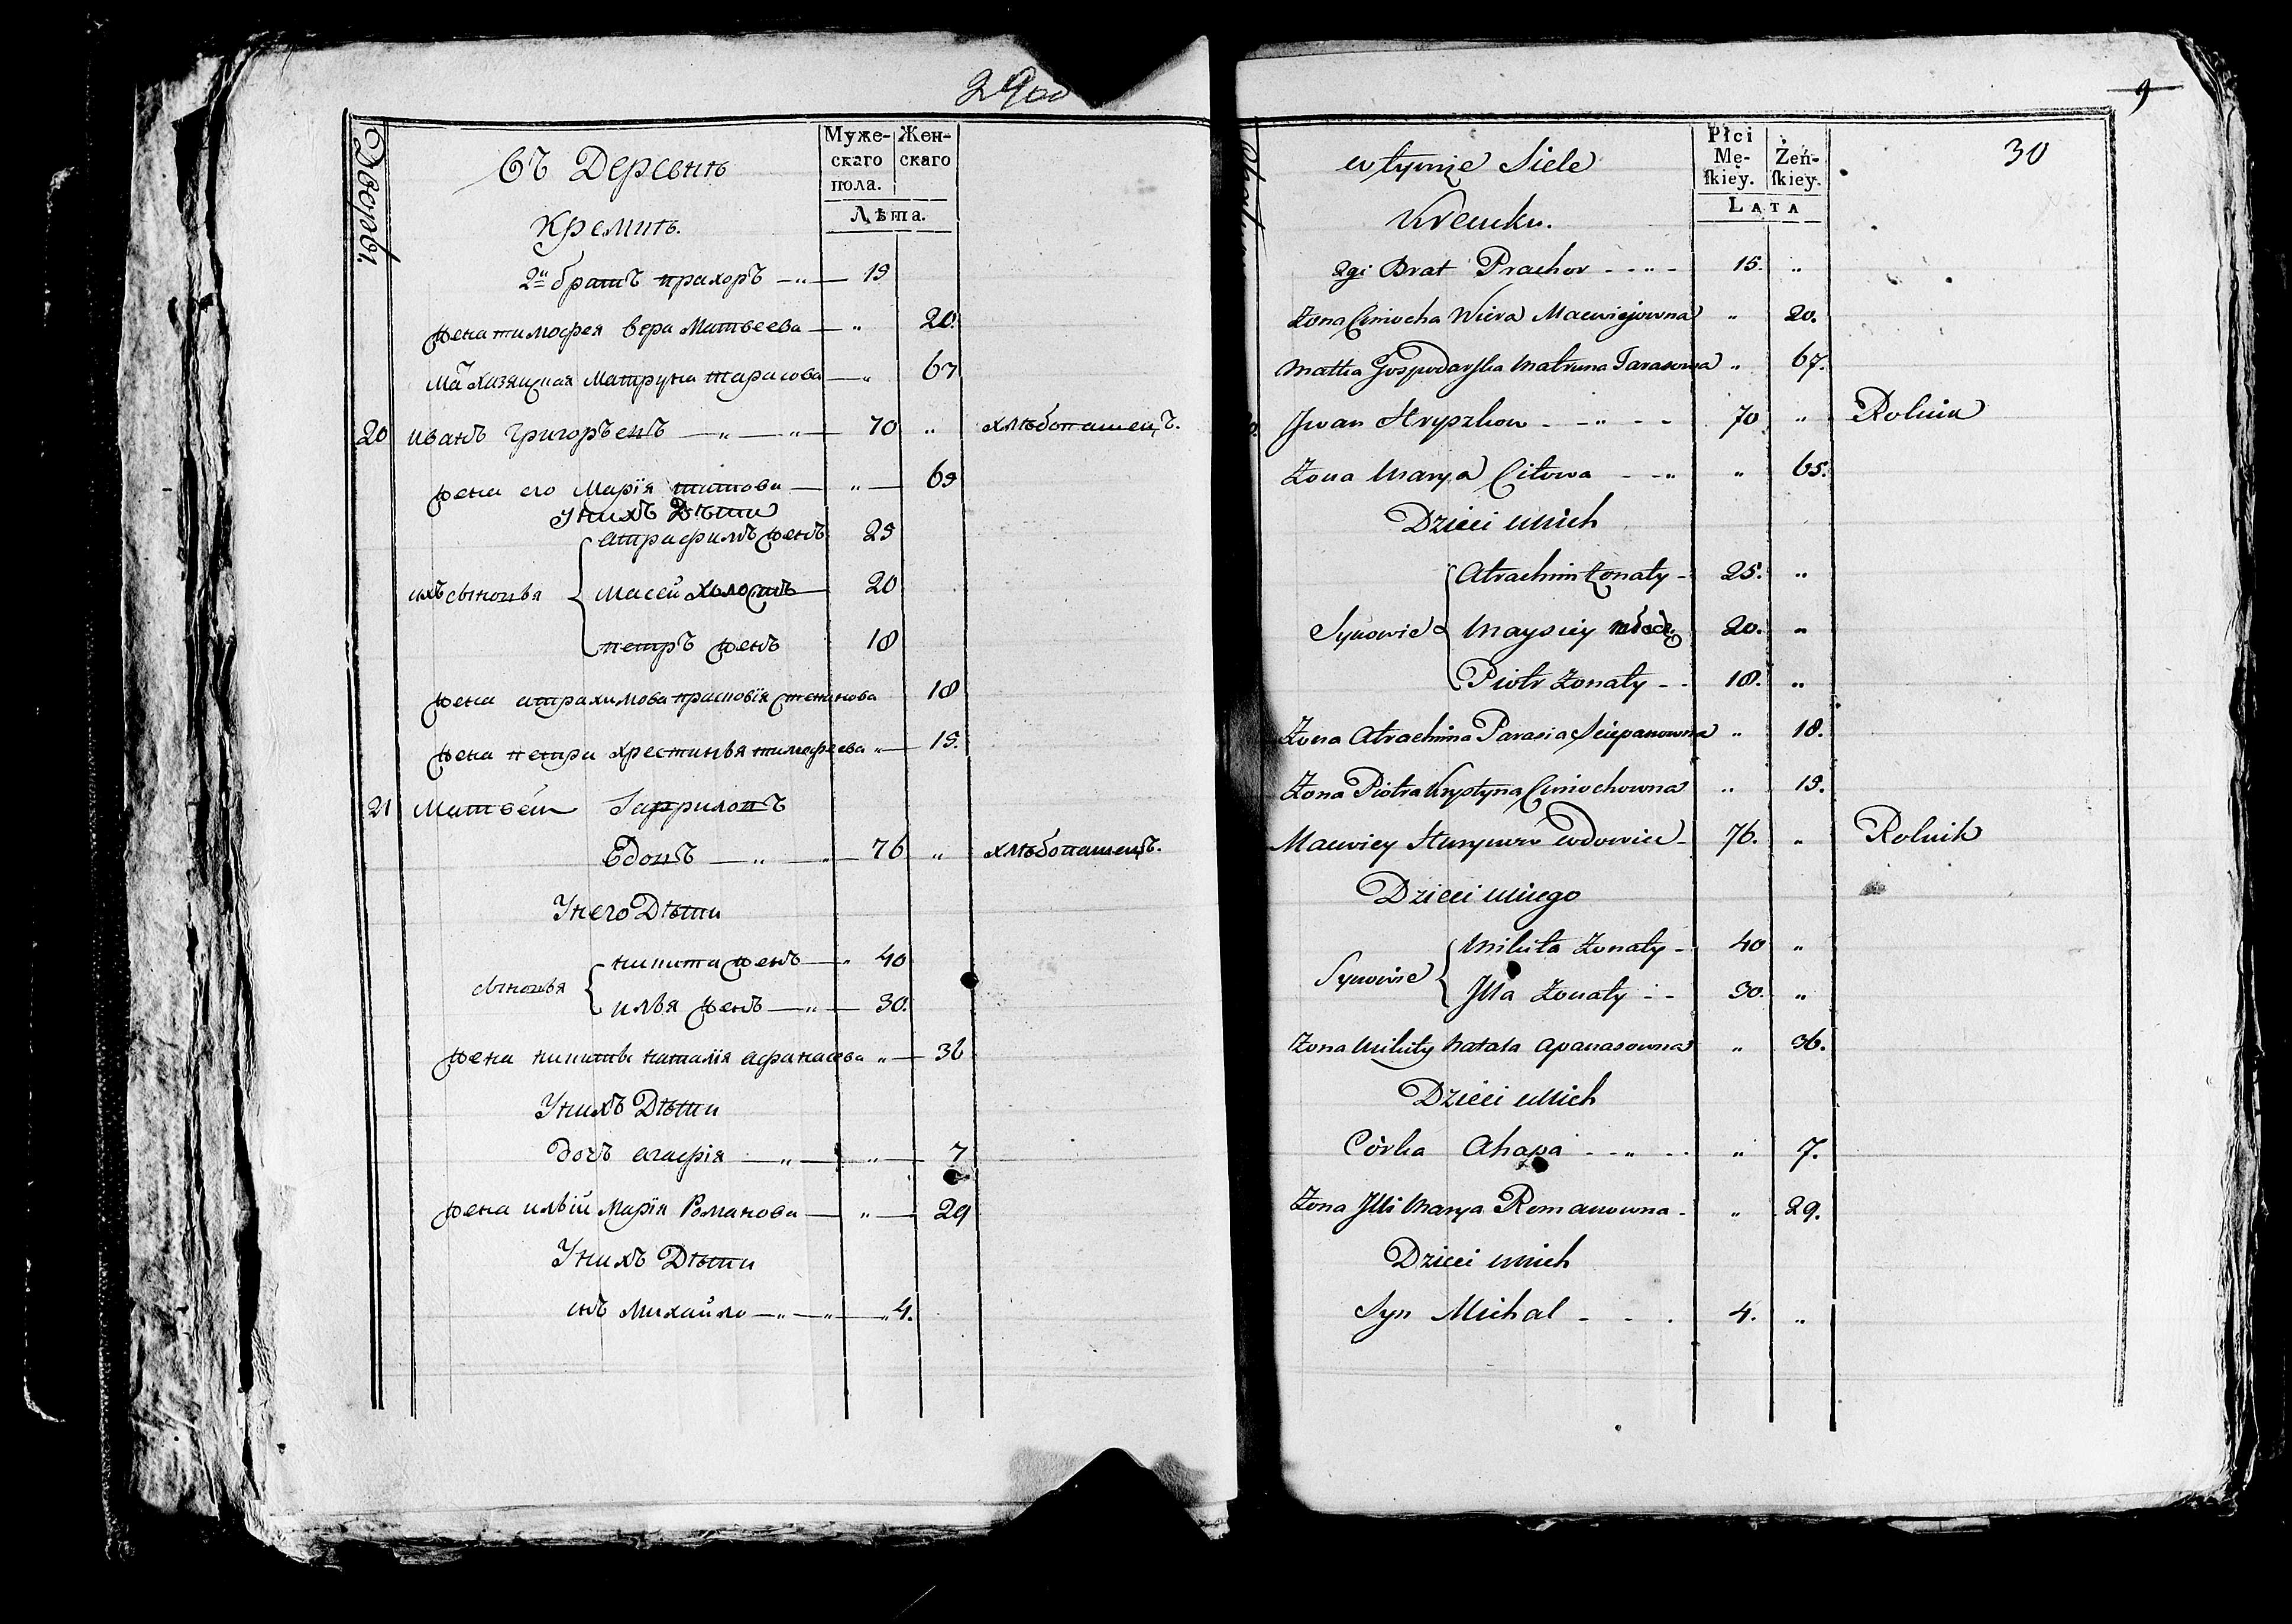 29об
Дворы.
Въ Деревнѣ
Муже-скаго пола.
Жен-скаго
Лѣта.
Кремитѣ.
2й братъ прахоръ — 19
жена тимофея вера Матвеева — „ 20.
Мать хазяцкая Матруна тарасова — „ 67
20 иванъ Григорьевъ — „ — „ — 70 „ хлѣбопашецъ.
жена его Марія титова — „ — 69
У нихъ Дѣти
атрафимъ жен 25
ихъ сыновья { Масей холостъ 20
петръ жен 18
жена атрахимова прасковія степанова 18
жена петра хрестинья тимофеева „ — 19.
21 Матвей Гаврилов
Вдовъ — „ — „ — 76 „ хлѣбопашецъ.
У него Дѣти
никита жен — „ 40
сыновья {
илья жен — „ — 30.
жена никиты наталія афанасева „ — 36
У нихъ Дѣти
дочь агафія — „ — „ — 7
жена ильіи Марія Романова — „ — 29
У нихъ Дѣти
сынъ Михайло — „ — „ — „ 4.
9
30
w tymże Siele
Płci Mę-ſkiey.
Żeń-ſkiey.
LATA
Kremku.
2gi Brat Prachor - - „ - 19. „
Żona Cimocha Wiera Maciejowna „ 20.
Matka Gospodarska Matruna Tarasowa „ 67.
Jwan Hryszkow - - „ - - 70 „ Rolnik
Żona Marya Citowa - - „ „ 69.
Dzieci u nich
Atrachim Żonaty - 25. „
Synowie { Maysiey młodz. 20. „
Piotr Żonaty - - 18. „
Żona Atrachima Parasia Sciepanowna „ 18.
Żona Piotra Krystyna Cimochowna „ 19.
Maciey Hurynow wdowiec - 76. „ Rolnik
Dzieci u niego
Mikita Żonaty - 40 „
Synowie {
Jlla Żonaty - - 30. „
Żona Mikity Natala Apanasowna „ 36.
Dzieci u nich
Córka Ahapa - - „ - - „ 7.
Żona Jlli Marya Romanowna - „ 29.
Dzieci u nich
Syn Michal - - . 4. „